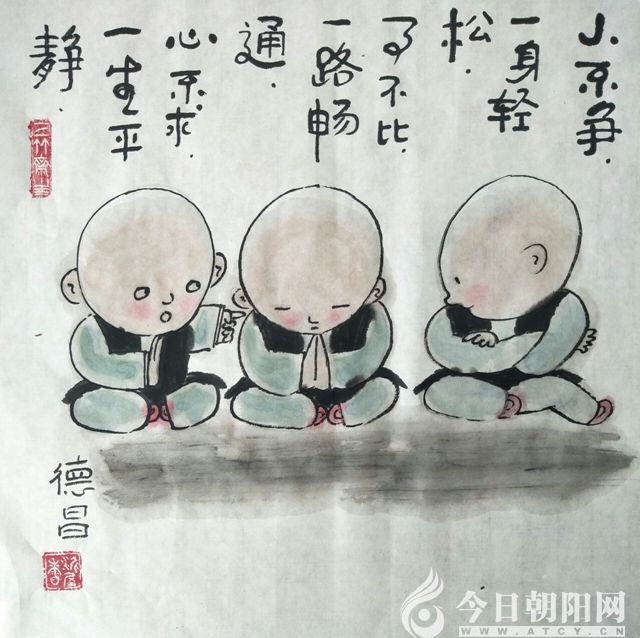 人不争.
一身轻
松.
事不比.
一路畅
通.
心不求.
一生平
静.
德昌
今日朝阳网
WWW.ATCY.CN